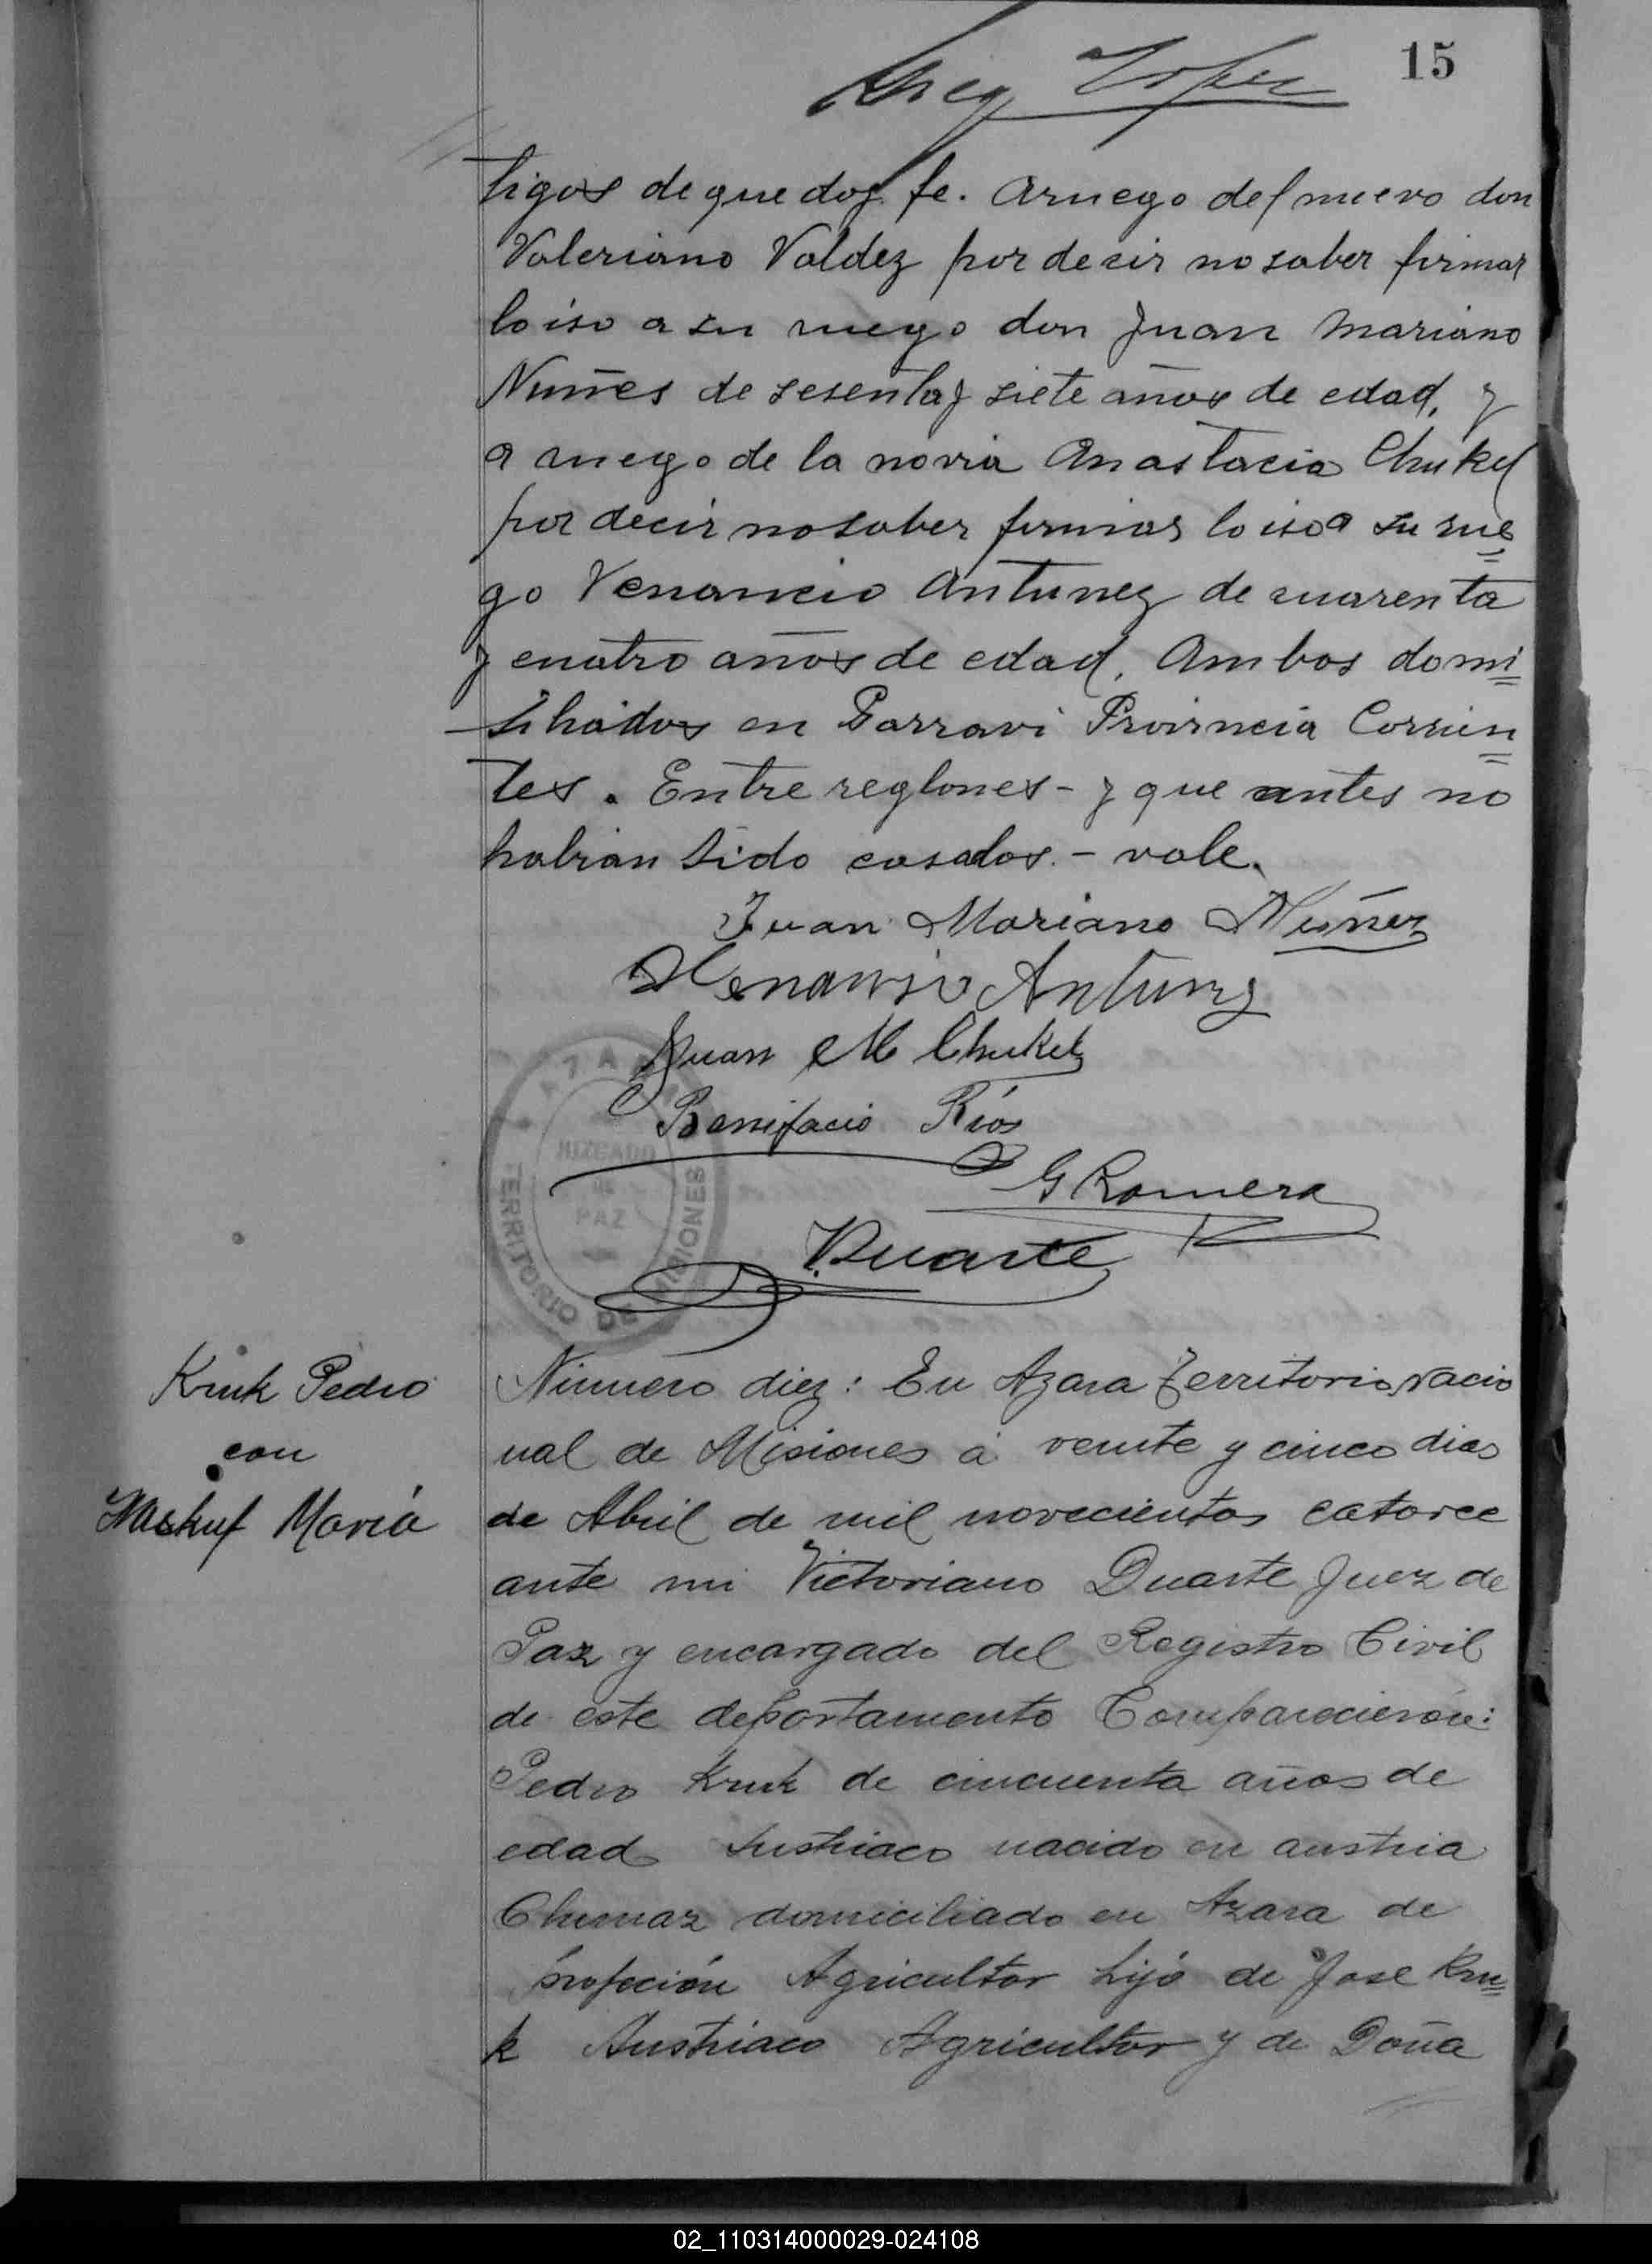 15
tigos de que doy fe. Aruego del nuevo don
Valeriano Valdez por desir no saber firmar
lo iso a su ruego don Juan Mariano
Nuñes de sesenta y siete años de edad, y
a ruego de la novia Anastacia Chukel
por decir no saber firmar lo iso a su rue
go Venancio Antunez de cuarenta
y cuatro años de edad, Ambos domi
siliados en Garravi Provincia Corrien
tes. Entre reglones - y que antes no
habian sido casados. - vale.
Juan Mariano Nuñez
Venansio Antunez
Juan M Chukel
Bonifacio Ríos
G Romera
V. Duarte
AZARA
JUZGADO
DE
PAZ
TERRITORIO DE MISIONES
Kruk Pedro
con
María
Número diez: En Azara Territorio Nacio
nal de Misiones á veinte y cinco dias
de Abril de mil novecientos catorce
ante mi Victoriano Duarte Juez de
Paz y encargado del Registro Civil
de este departamento Comparecierón:
Pedro Kruk de cincuenta años de
edad Austriaco nacido en austria
domiciliado en Azara de
profeción Agricultor hijo de Jose Kru
k Austriaco Agricultor y de Doña
02_110314000029-024108